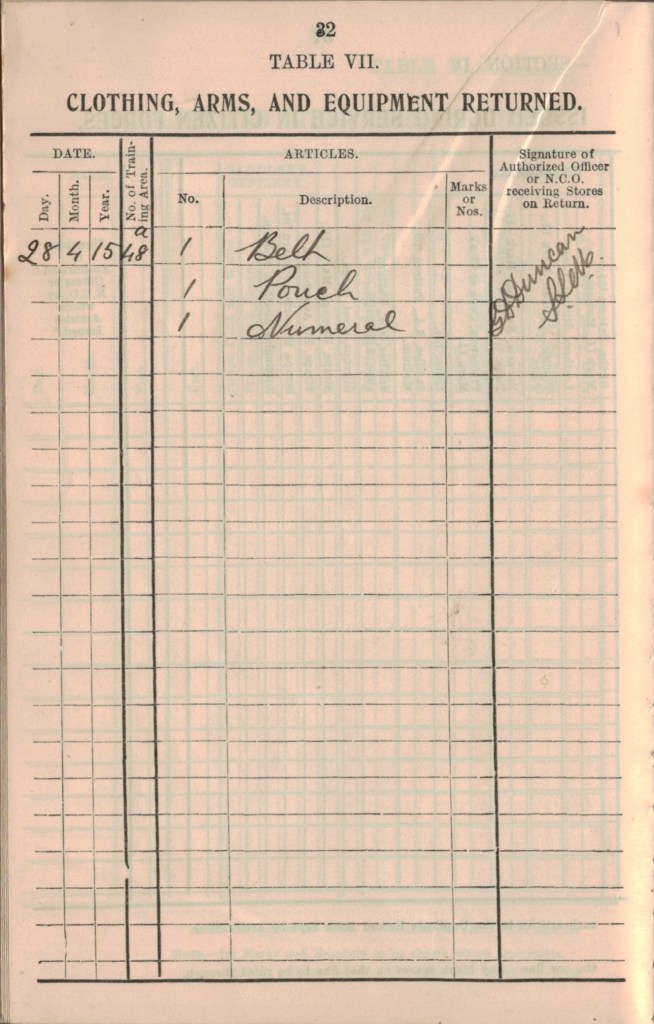 32
TABLE VII.
CLOTHING, ARMS, AND EQUIPMENT RETURNED.
DATE.
Day.
Month.
Year.
No. of Train-
ing Area.
ARTICLES.
No.
Description.
Marks
or
Nos.
Signature of
Authorized Officer
or N.C.O.
receiving Stores
on Return.
28 4 15 48a 1 Belt
1 Pouch
1 Numeral
Duncan